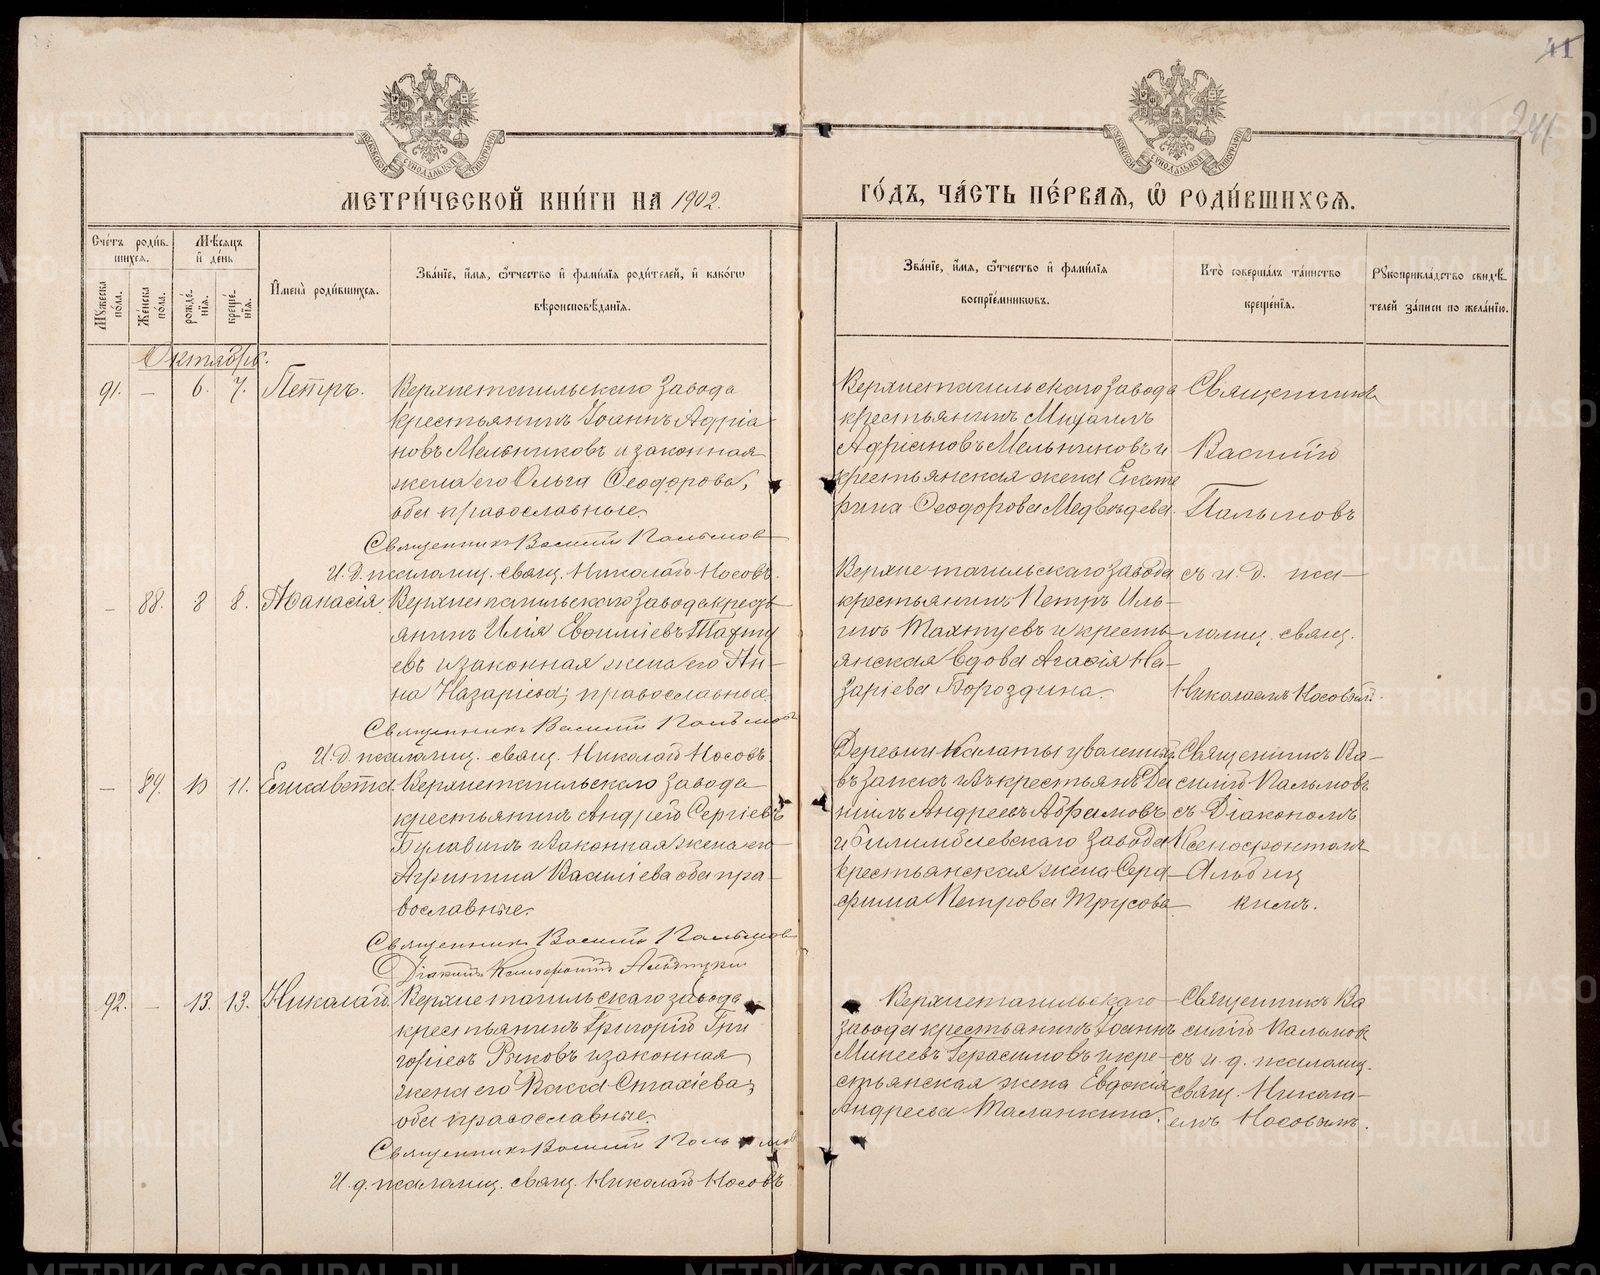 41
241
МЕТРИ́ЧЕСКОЙ КНИ́ГИ НА 1902.
ГО́ДЪ, ЧА́СТЬ ПЕ́РВАЯ, Ѿ РОДИ́ВШИХСЯ.
Сче́тъ роди́в-
шихся.
Мѣ́сяцъ
и де́нь
Му́жеска по́ла.
Же́нска по́ла.
рожде́-
нія.
креще́-
нія.
Имена̀ роди́вшихся.
Зва́ніе, и́мя, ѻ́тчество и фами́лія роди́телей, и како́гѡ
вѣроисповѣ́данія.
Зва́ніе, и́мя, ѻ́тчество и фами́лія
воспріе́мникѡвъ.
Кто̀ соверша́лъ та́инство
креще́нія.
Рукоприкла́дство свидѣ́-
телей за́писи по жела́нію.
Октябрь.
91. — 6. 7. Петръ.
Верхнетагильскаго завода
крестьянинъ Іоаннъ Адріа
новъ Мельниковъ и законная
жена его Ольга Ѳеодорова,
оба православные.
Священникъ Василій Пальмовъ
И. д. псаломщ. свящ. Николай Носовъ.
Верхнетагильскаго завода
крестьянинъ Михаилъ
Адріановъ Мельниковъ и
крестьянская жена Екате
рина Ѳеодорова Медвѣдева.
Священникъ
Василій
Пальмовъ
съ и. д. пса-
ломщ. свящ.
Николаемъ Носовымъ.
— 88. 8 8. Аѳанасія.
Верхнетагильскаго завода кресть
янинъ Илія Евфиміевъ Тахту
евъ и законная жена его Ан-
на Назаріева; православные.
Священникъ Василій Пальмовъ
И. д. псаломщ. свящ. Николай Носовъ
Верхнетагильскаго завода
крестьянинъ Петръ Иль-
инъ Тахтуевъ и кресть-
янская вдова Агафія На-
заріева Бороздина.
— 89. 10 11. Елисавета.
Верхнетагильскаго завода
крестьянинъ Андрей Сергіевъ
Булавинъ и законная жена его
Агрипина Василіева оба пра-
вославные.
Священникъ Василій Пальмовъ
Діаконъ Ксенофонтъ Альбицкій
Деревни Калаты уволенный
въ запасъ изъ крестьянъ Да
ніилъ Андреевъ Абрамовъ
и Билимбаевскаго завода
крестьянская жена Сера
фима Петрова Трусова
Священникъ Ва-
силій Пальмовъ
съ Діакономъ
Ксенофонтомъ
Альбиц
кимъ.
92. — 13. 13. Николай.
Верхнетагильскаго завода
крестьянинъ Григорій Гри
горіевъ Рыковъ и законная
жена его Васса Стахіева;
оба православные.
Священникъ Василій Пальмовъ
И. д. псаломщ. свящ. Николай Носовъ
Верхнетагильскаго
завода крестьянинъ Іоаннъ
Михеевъ Герасимовъ и кре-
стьянская жена Евдокія
Андреева Таланкина.
Священникъ Ва
силій Пальмовъ
съ и. д. псаломщ.
свящ. Никола-
емъ Носовымъ.
METRIKI.GASO-URAL.RU